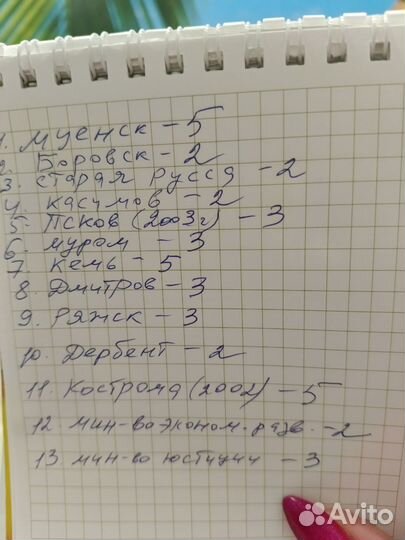 1. Мценск - 5
2. Боровск - 2
3. Старая Русса - 2
4. Касимов - 2
5. Псков (2003г) - 3
6. Муром - 3
7. Кемь - 5
8. Дмитров - 3
9. Ряжск - 3
10. Дербент - 2
11. Кострома (2002) - 5
12. мин-во эконом. разв. - 2
13. мин-во юстиции - 3
Avito